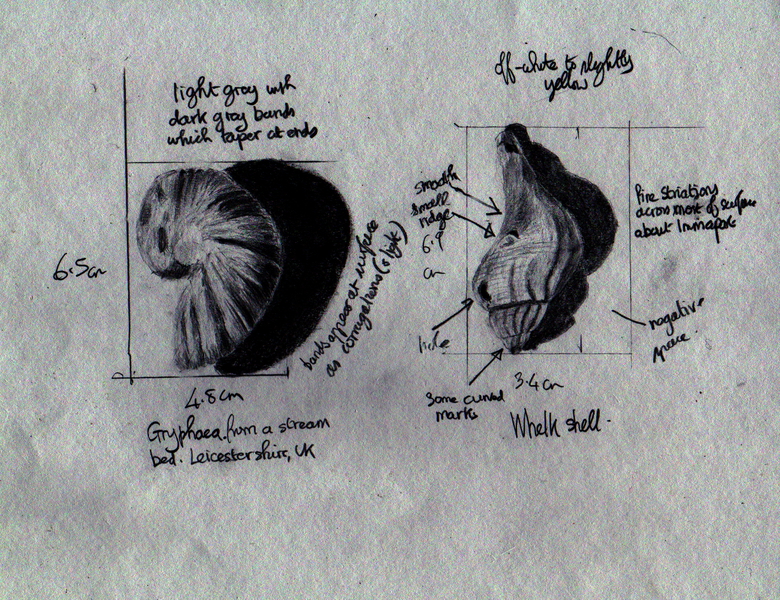 light grey with
dark grey bands
which taper at ends
6.5cm
4.8cm
bands appear at surface
as corrugations (slight)
Gryphaea from a stream
bed. Leicestershire, UK
off-white to slightly
yellow
smooth
small
ridge
6.9
cm
hole
Some curved
marks
3.4cm
Whelk shell.
Fine striations
across most of surface
about 1mm apart
negative
space